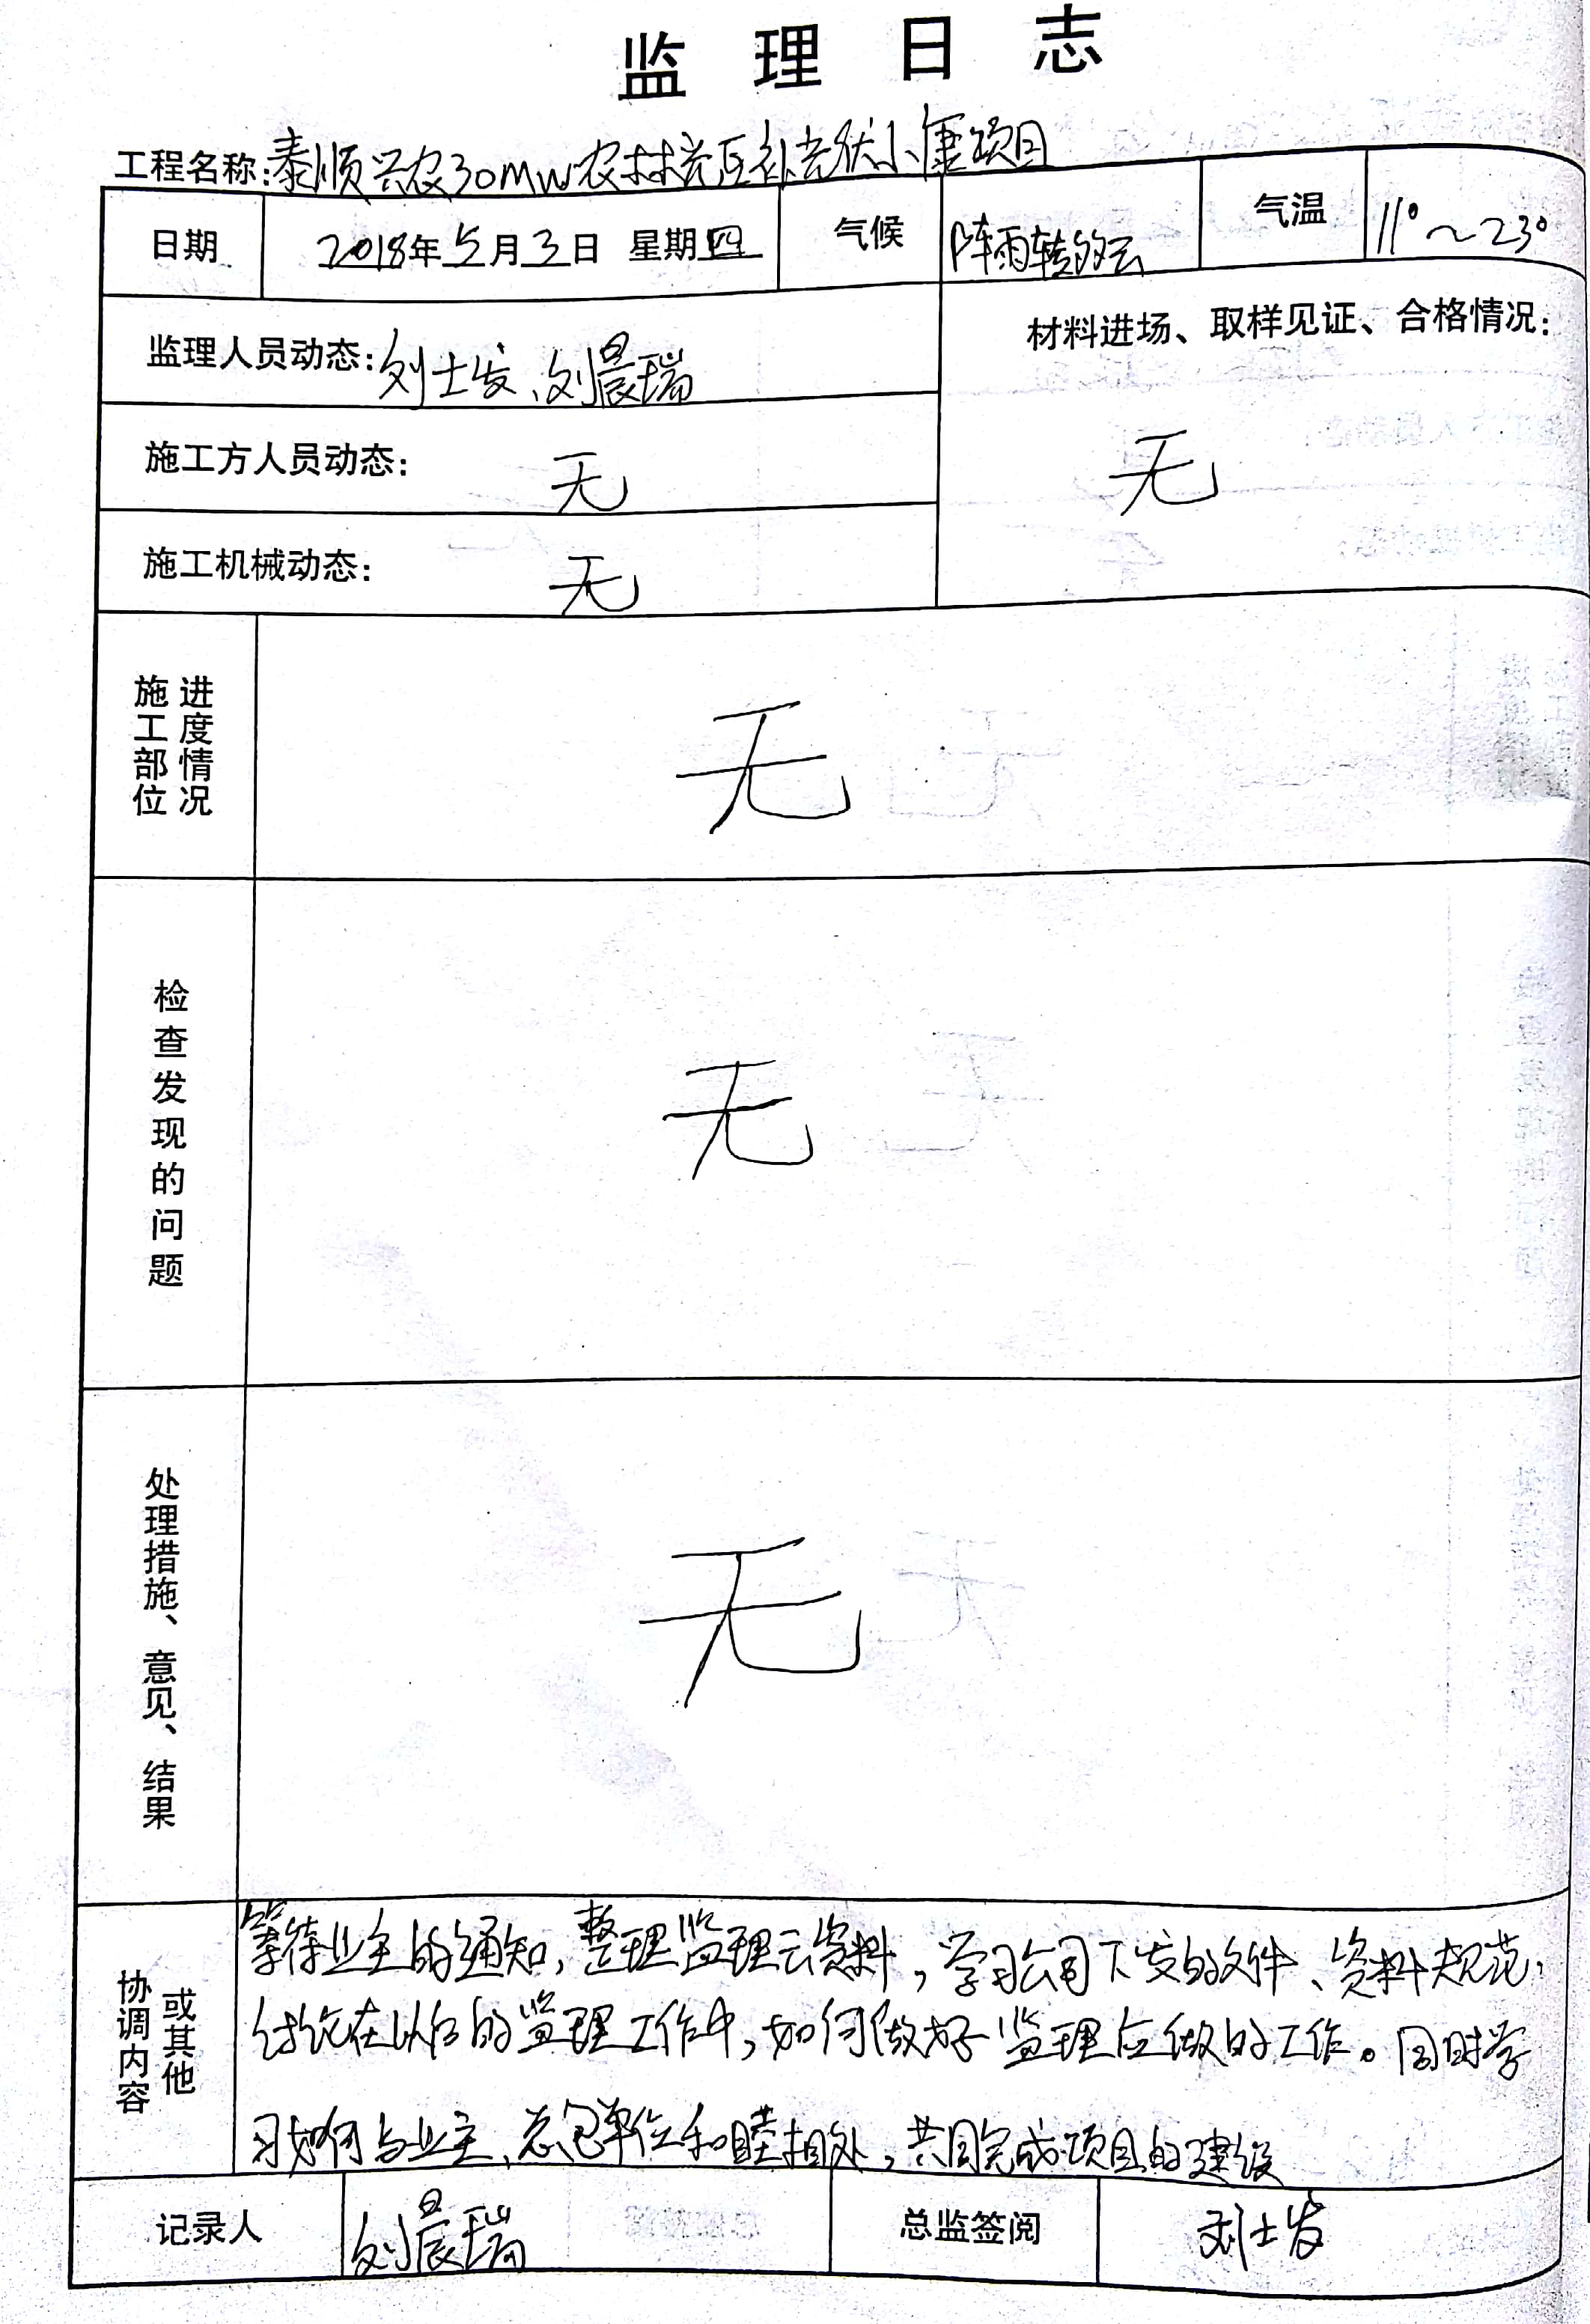 监理日志
工程名称:泰顺兴农30MW农林光互补光伏小康项目
日期 2018年5月3日 星期四 气候 阵雨转多云 气温 11°~23°
监理人员动态:刘士发、刘晨瑞
材料进场、取样见证、合格情况:
无
施工方人员动态: 无
施工机械动态: 无
施工部位
进度情况
无
检查发现的问题
无
处理措施、意见、结果
无
协调内容
或其他
等待业主的通知,整理监理云资料,学习公司下发的文件、资料规范,
讨论在以后的监理工作中,如何做好监理应做的工作。同时学
习如何与业主、总包单位和睦相处,共同完成项目的建设
记录人 刘晨瑞 总监签阅 刘士发